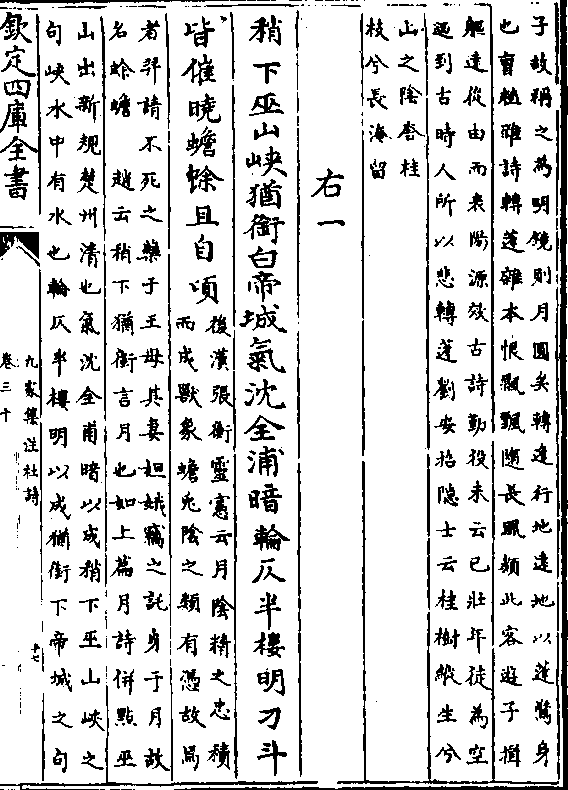 子故稱之為明鏡則月圓矣轉蓬行地遠地以蓬鶩身
也曹植雜詩轉蓬離本恨飄飄隨長風類此客遊子捐
軀遠從由而表陽源效古詩勤役未云已壯年徒為空
遥到古時人所以悲轉蓬劉安招隐士云桂樹叢生兮
山之陰攀桂
枝兮長淹留
右一
稍下巫山峽猶銜白帝城氣沈全浦暗輪仄半樓明刁斗
皆催曉蟾蜍且自頃
後漢張衡靈憲云月陰精之忠積
而成獸象蟾兎陰之類有憑故焉
者羿請不死之藥于王母其妻姮娥竊之託身于月故
名蛉蟾 趙云稍下猶銜言月也如上篇月詩併點巫
山出新規楚州清也氣沈全甫暗以成稍下巫山峽之
句峽水中有水也輪仄半樓明以成猶銜下帝城之句
欽定四庫全書
九家集注杜詩
卷三十
十七